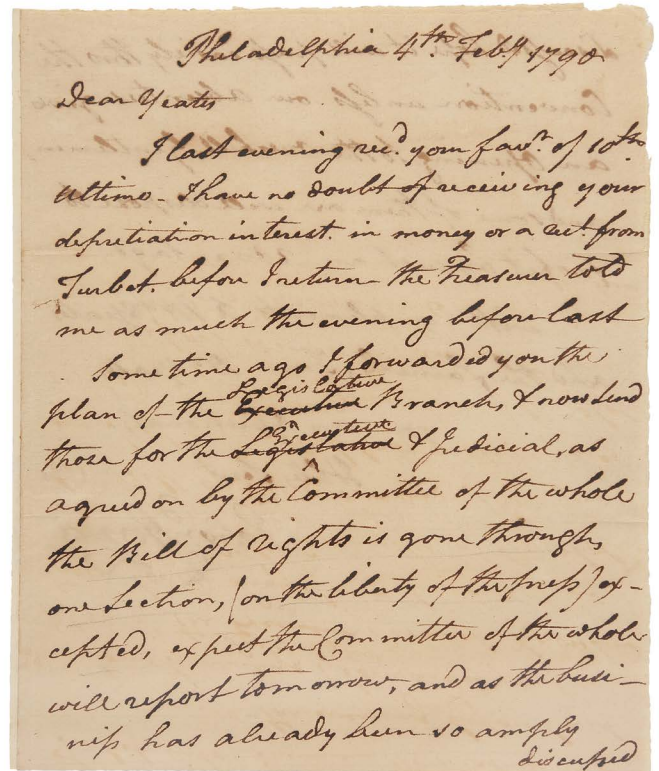 Philadelphia 4th Feby 1790
Dear Yeates
I last evening recd. your favr. of 10th
Ultimo - I have no doubt of receiving your
depretiation interest. in money or a rect. from
Turbet. before I return - the Treasurer told
me as much the evening before last
Some time ago I forwarded you the
Legislative
plan of the Executive Branch, & now send
Executive
those for the Legislative & Judicial, as
^
agreed on by the Committee of the whole
the Bill of rights is gone through,
one Section, (on the liberty of the press) ex-
cepted, expect the Committee of the whole
will report tomorrow, and as the busi-
ness has already been so amply
discussed